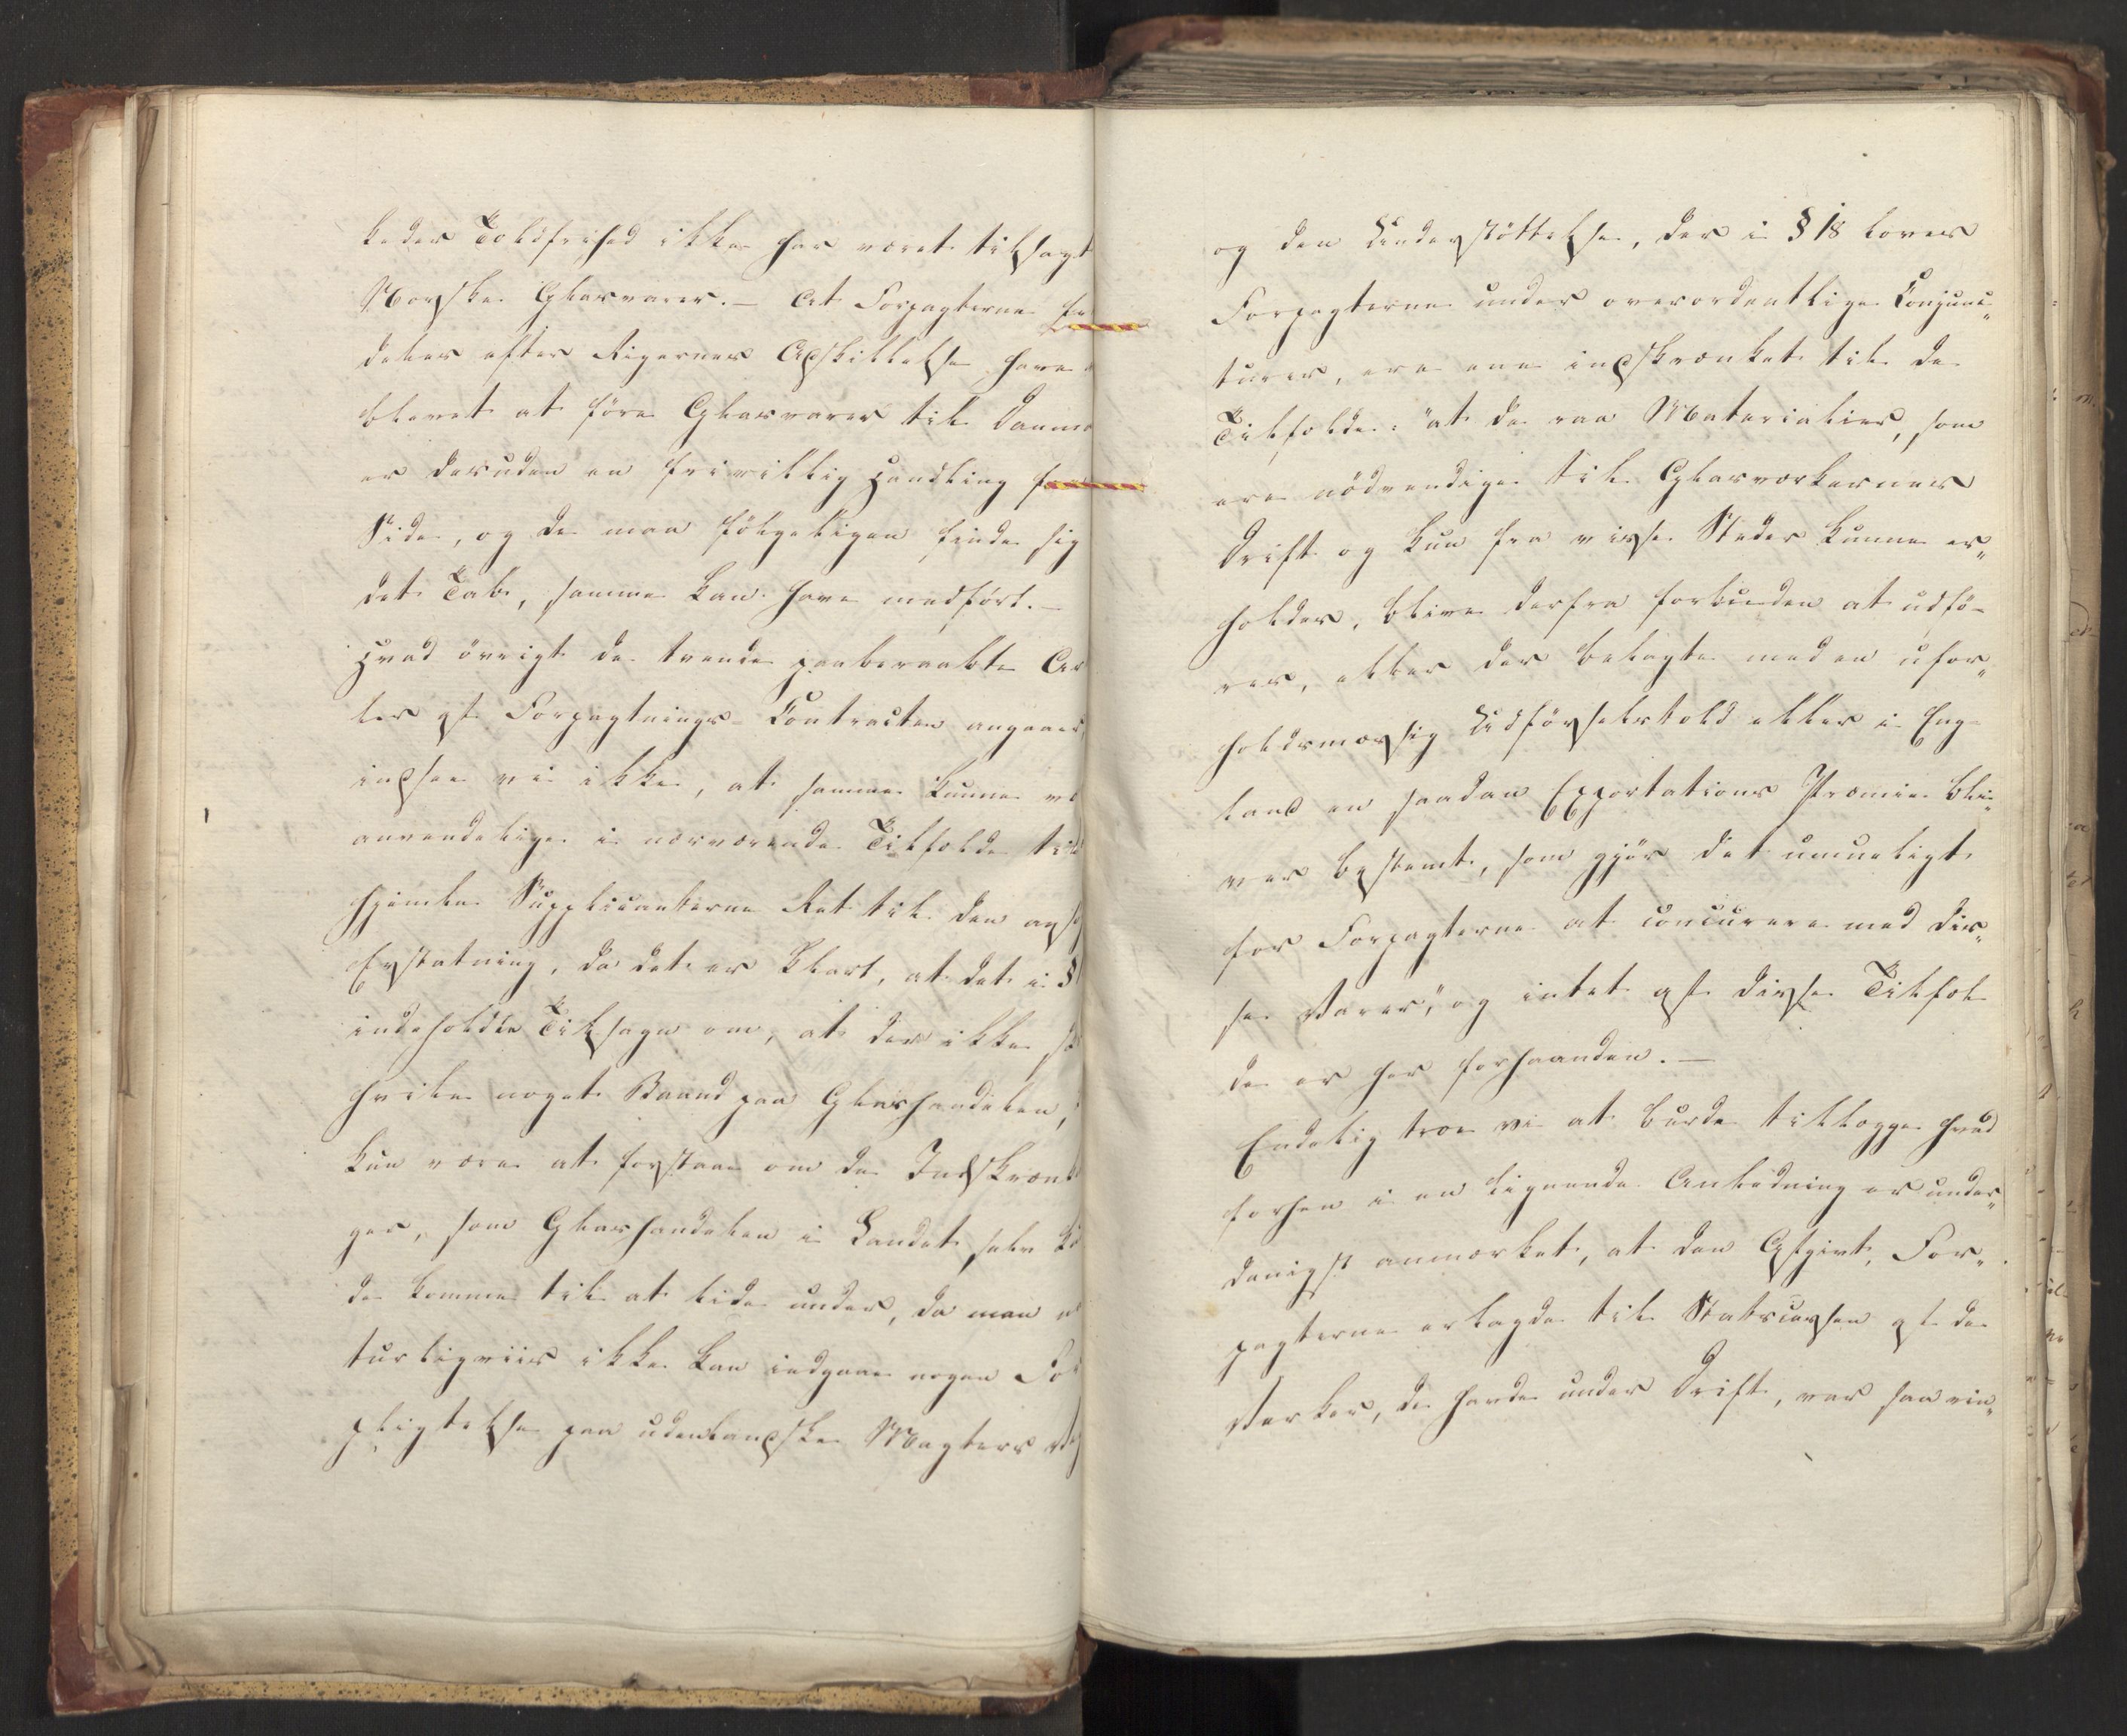 keder Toldfrihed ikke har været tilsagt
Norske Glasvarer. – At Forpagterne fr
deles efter Rigernes Adskillelse have
blevet at føre Glasvarer til Danma
er desuden en frivillig Handling fra
Side, og de maa følgeligen finde sig
det Tab, samme kan have medført. –
Hvad øvrigt de trende paaberaabte Ar
ler af Forpagtnings-Contracten angaaer
indsee vi ikke, at samme kunne væ
anvendelige i nærværende Tilfælde til
hjemle Supplicanterne Ret til den ansø
Erstatning, da det er klart, at det i §
indeholdte Tilsagn om, at der ikke sk
hvile noget Baand paa Glashandelen,
kun være at forstaae om de Indskrænk
ger, som Glashandelen i Landet selv ku
de komme til at lide under, da man na
turligviis ikke kan indgaae nogen For
pligtelse paa udenlandske Magters Ve
og den Understøttelse, der i § 18 loves
Forpagterne under overordentlige Conjunc„
turer, ere ene indskrænket til de
Tilfælde: "at de raa Materialier, som
ere nødvendige til Glasværkernes
Drift og kun fra visse Steder kunne er„
holdes, blive derfra forbuden at udfø-
res, eller der belagte med en ufor„
holdsmæssig Udførselstold eller i Eng-
land en saadan Exportations Præmie bli„
ver bestemt, som gjør det umueligt
for Forpagterne at concurere med dis„
se Varer," og intet af disse Tilfæl
de er her forhaanden. –
Endelig troe vi at burde tillægge hvad
forhen i en lignende Anledning er under„
danigst anmærket, at den Afgivt, For„
pagterne erlagde til Statscassen af de
Værker, de havde under Drift, var saa rin„